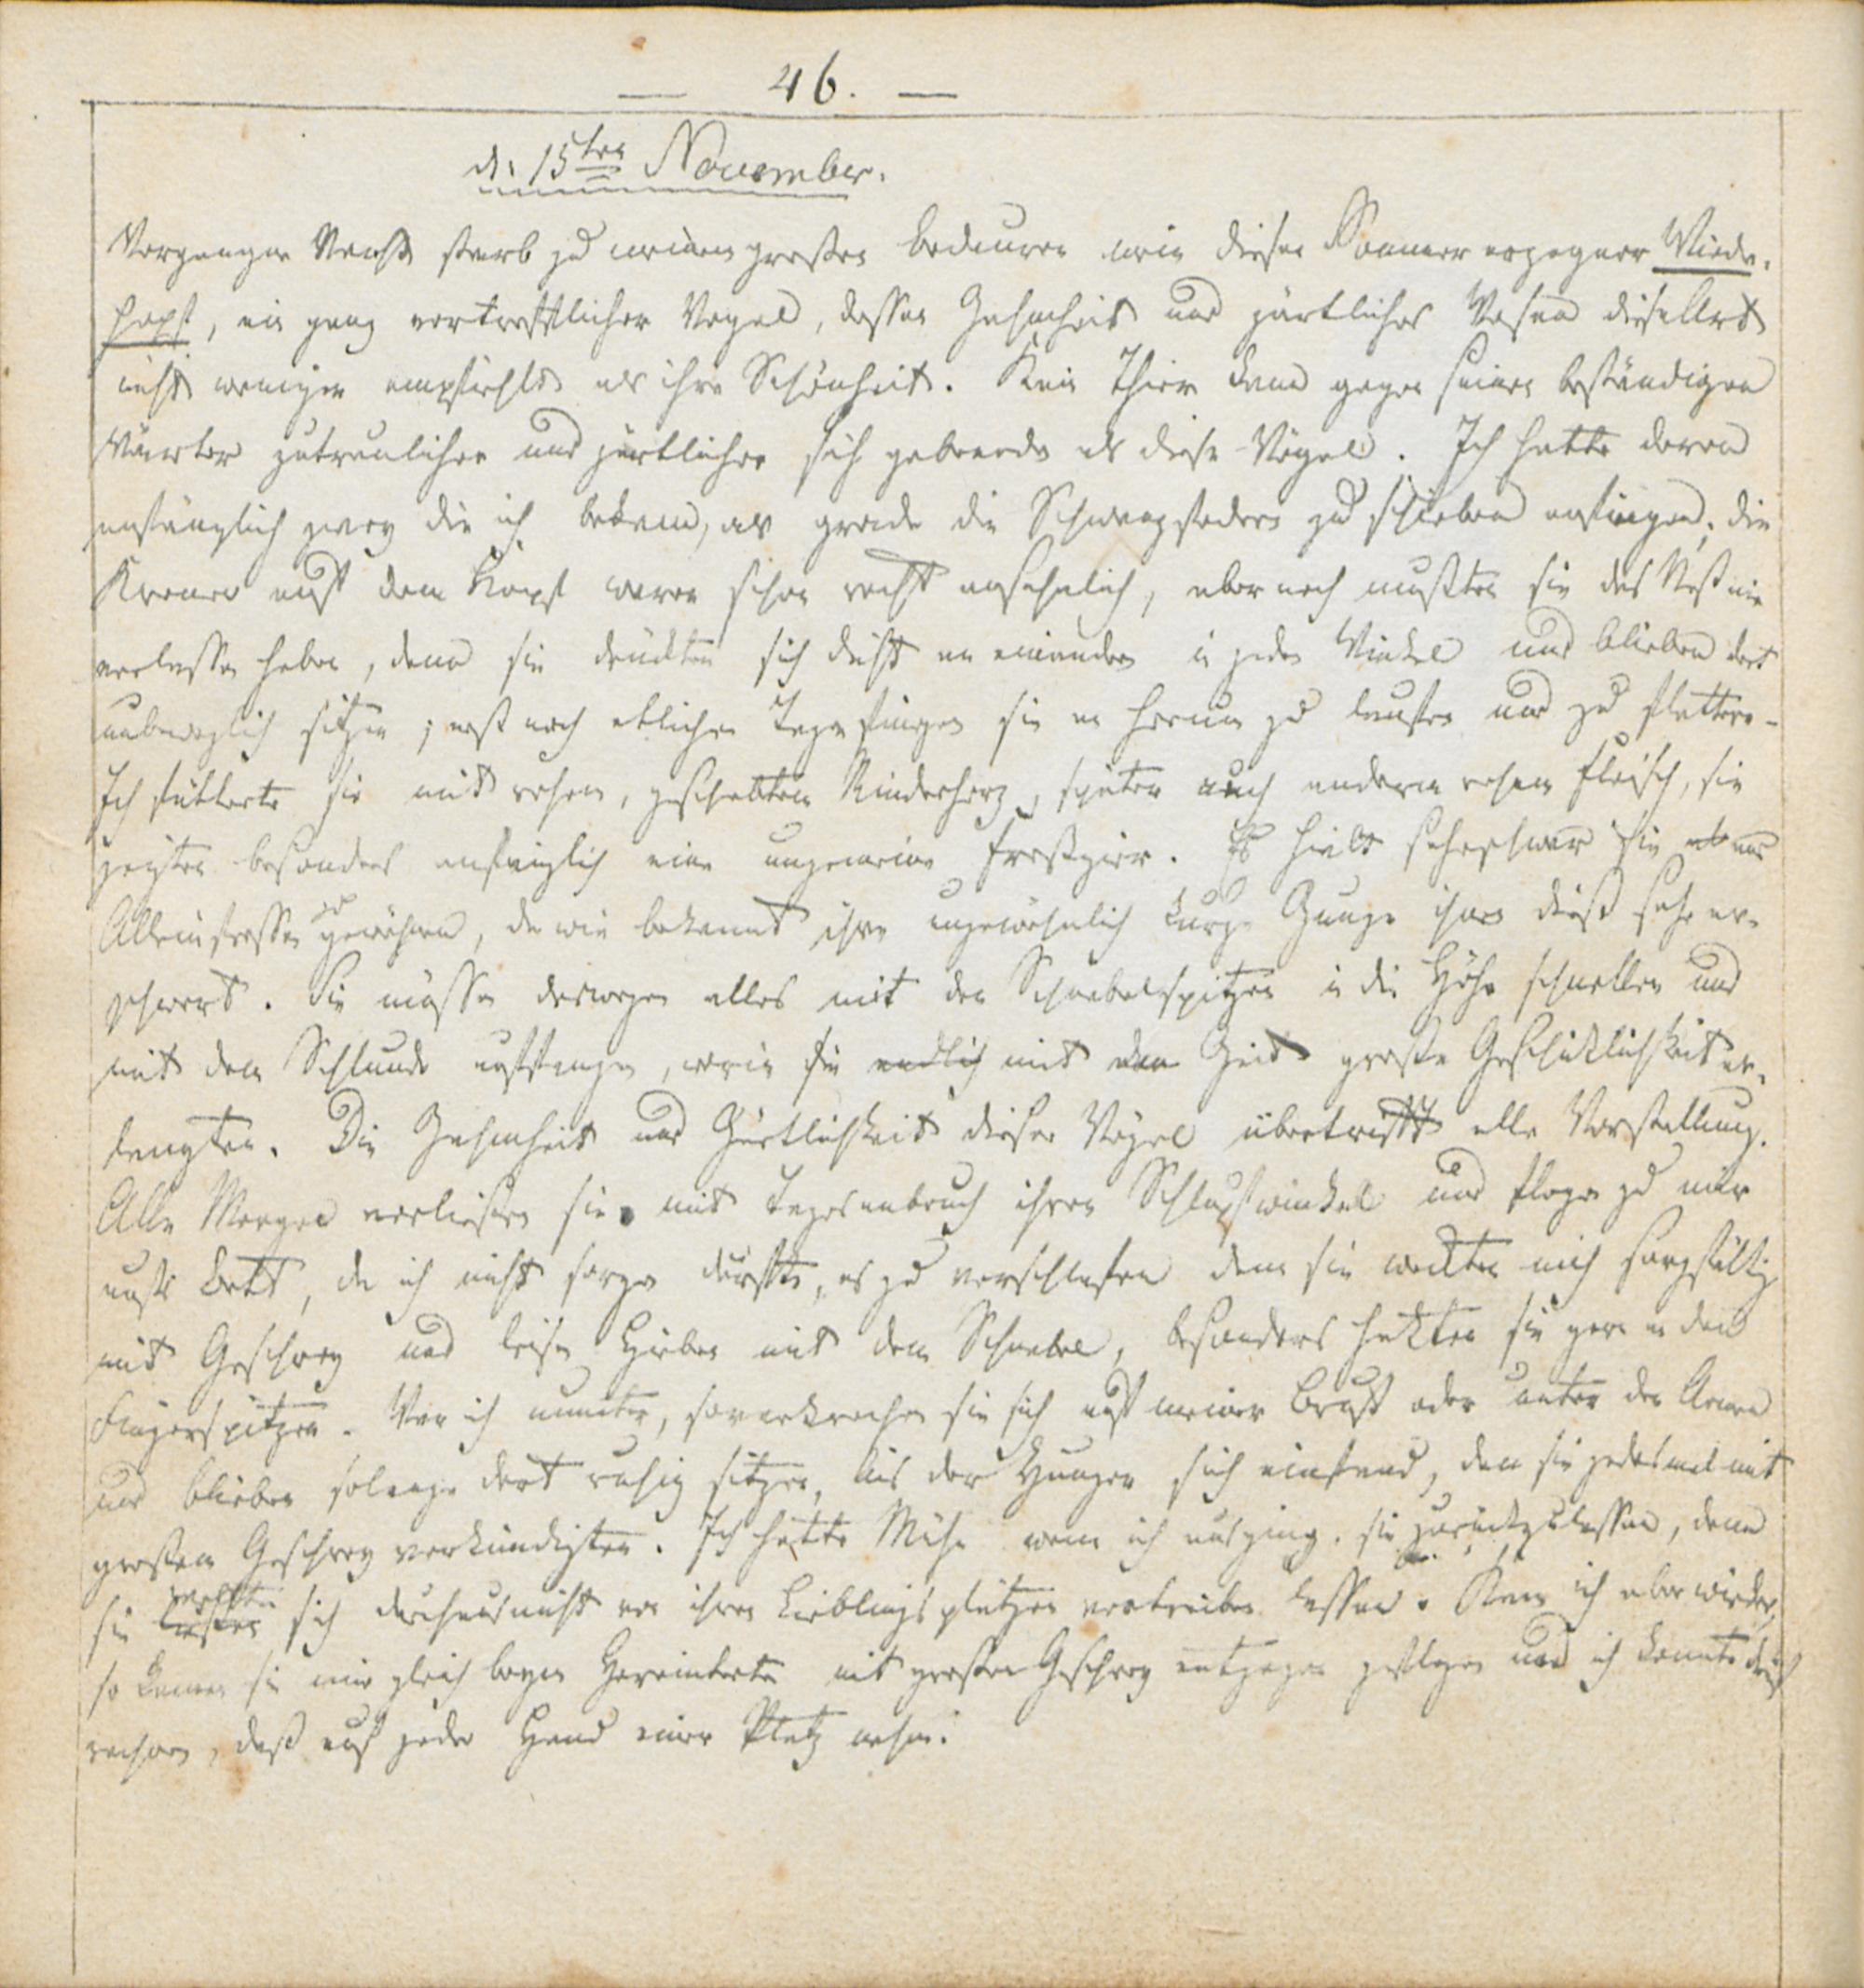 — 46. —
d: 15ten November.
Vergangne Nacht starb zu meinem großen bedauren mein diesen Sommer erzogner Wiede-
hopf, ein ganz vortrefflicher Vogel, dessen Zahmheit und zärtliches Wesen dieselbst
nicht weniger empfiehlt als ihre Schönheit. Kein Thier kann gegen seinen beständigen
Wärter zutraulicher und zärtlicher sich gebärden als diese Vögel. Ich hatte deren
anfänglich zwey die ich bekam, als grade die Schwanzfedern zu schieben anfingen; die
Kronen auf dem Kopf waren schon recht ansehnlich, aber noch mußten sie das Nest nie
verlassen haben, denn sie drückten sich dicht an einander in jeden Winkel und blieben dort
unbeweglich sitzen; erst nach etlichen Tagen fingen sie an herum zu laufen und zu flattern.
Ich fütterte sie mit rohem, geschabten Rinderherz, später auch anderm rohem Fleisch, sie
zeigten besonders anfänglich eine ungemeine Freßgier. Es hielt sehr schwer sie ans
Alleinfressen zu gewöhnen, da wie bekannt ihre ungewöhnlich kurze Zunge ihnen dieß sehr er-
schwert. Sie müssen deswegen alles mit der Schnabelspitzen in die Höhe schnellen und
mit dem Schlunde auffangen, worin sie endlich mit der Zeit große Geschicklichkeit er-
langten. Die Zahmheit und Zärtlichkeit dieser Vögel übertrifft alle Vorstellung.
Alle Morgen verließen sie mit Tagesanbruch ihren Schlupfwinkel und flogen zu mir
aufs Bett, da ich nicht sorgen durfte, es zu verschlafen denn sie weckten mich sorgfältig
mit Geschrey und leisen Hieben mit dem Schnabel, besonders hakten sie gern an den
Fingerspitzen. War ich munter, so verkrochen sie sich auf meiner Brust oder unter den Armen
und blieben solange dort ruhig sitzen, bis der Hunger sich einfand, den sie jedesmal mit
großem Geschrey verkündigten. Ich hatte Mühe wenn ich ausging, sie zurückzulassen, denn
sie wollten sich durchaus nicht von ihren Lieblingsplätzen vertreiben lassen. Kam ich aber wieder,
so kamen sie mir gleich beym Hereintreten mit großem Geschrey entgegen geflogen und ich konnte drauf
rechnen, daß auf jeder Hand einer Platz nahm.